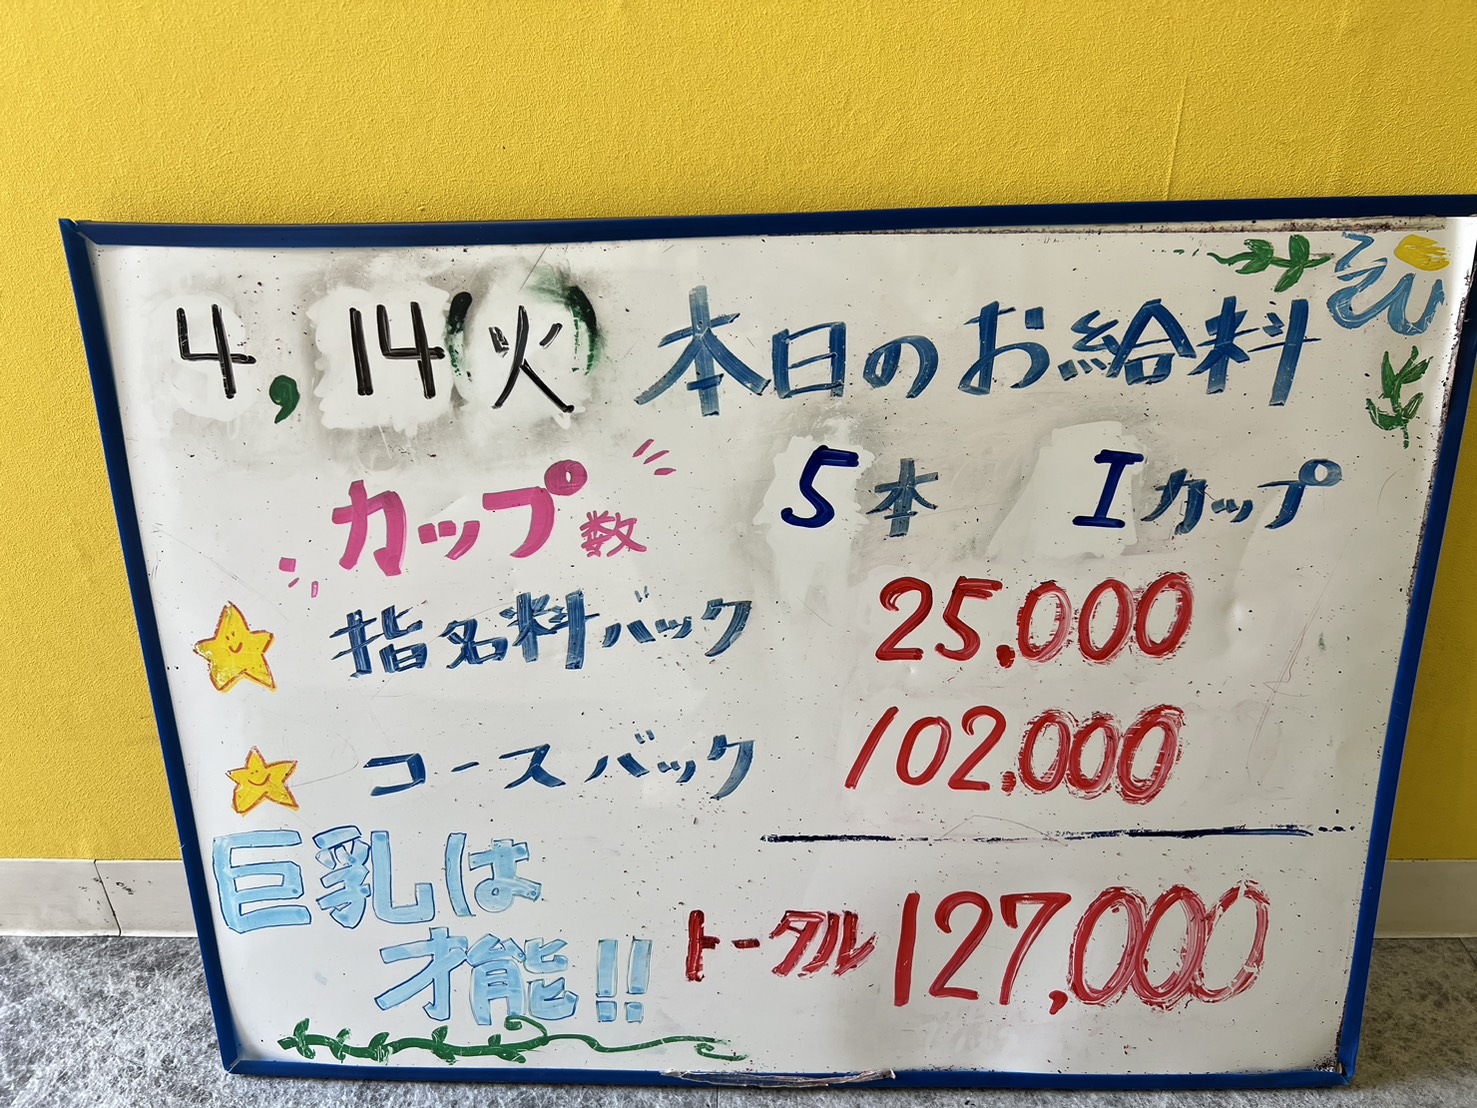 4, 14(火) 本日のお給料
カップ数 5本 Iカップ
指名料バック 25.000
コースバック 102.000
巨乳は
才能!!
トータル 127,000